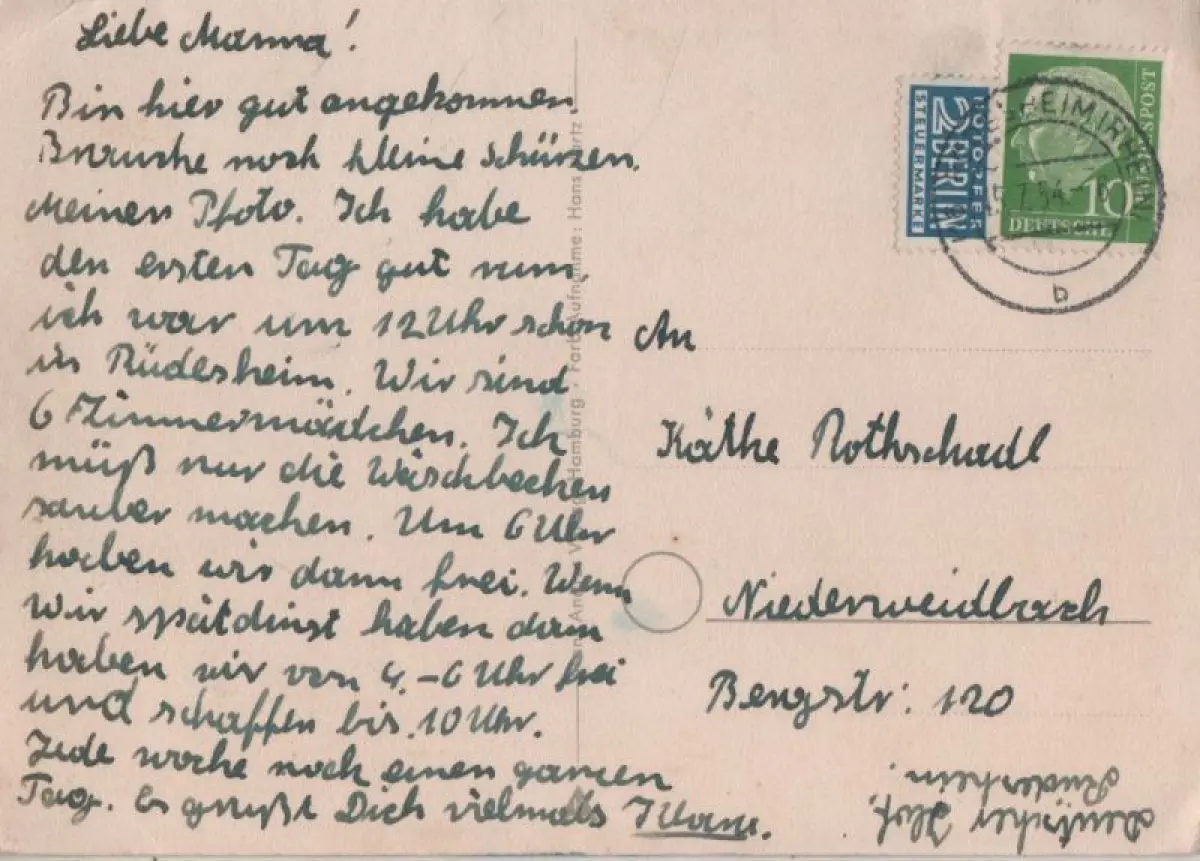 Liebe Mamma!
Bin hier gut angekommen.
Brauche noch kleine Schürzen.
Meinen Pfoto. Ich habe
den ersten Tag gut rum.
ich war um 12 Uhr schon
in Rüdesheim. Wir sind
6 Zimmermädchen. Ich
müß nur die Wäschbecken
sauber machen. Um 6 Uhr
haben wir dann frei. Wenn
Wir spätdinst haben dann
haben wir von 4.-6 Uhr frei
und schaffen bis 10 Uhr.
Jede woche noch einen ganzen
Tag. Es grüßt Dich vielmals
Hamburg · Farb-Aufnahme: Hans Hartz
NOTOPFER
2 BERLIN
STEUERMARKE
10
DEUTSCHE
BUNDESPOST
RÜDESHEIM (RHEIN)
7.54
b
An
Käthe Rothschadl
Niederweidbach
Bergstr: 120
deutscher Hof.
Rüdesheim